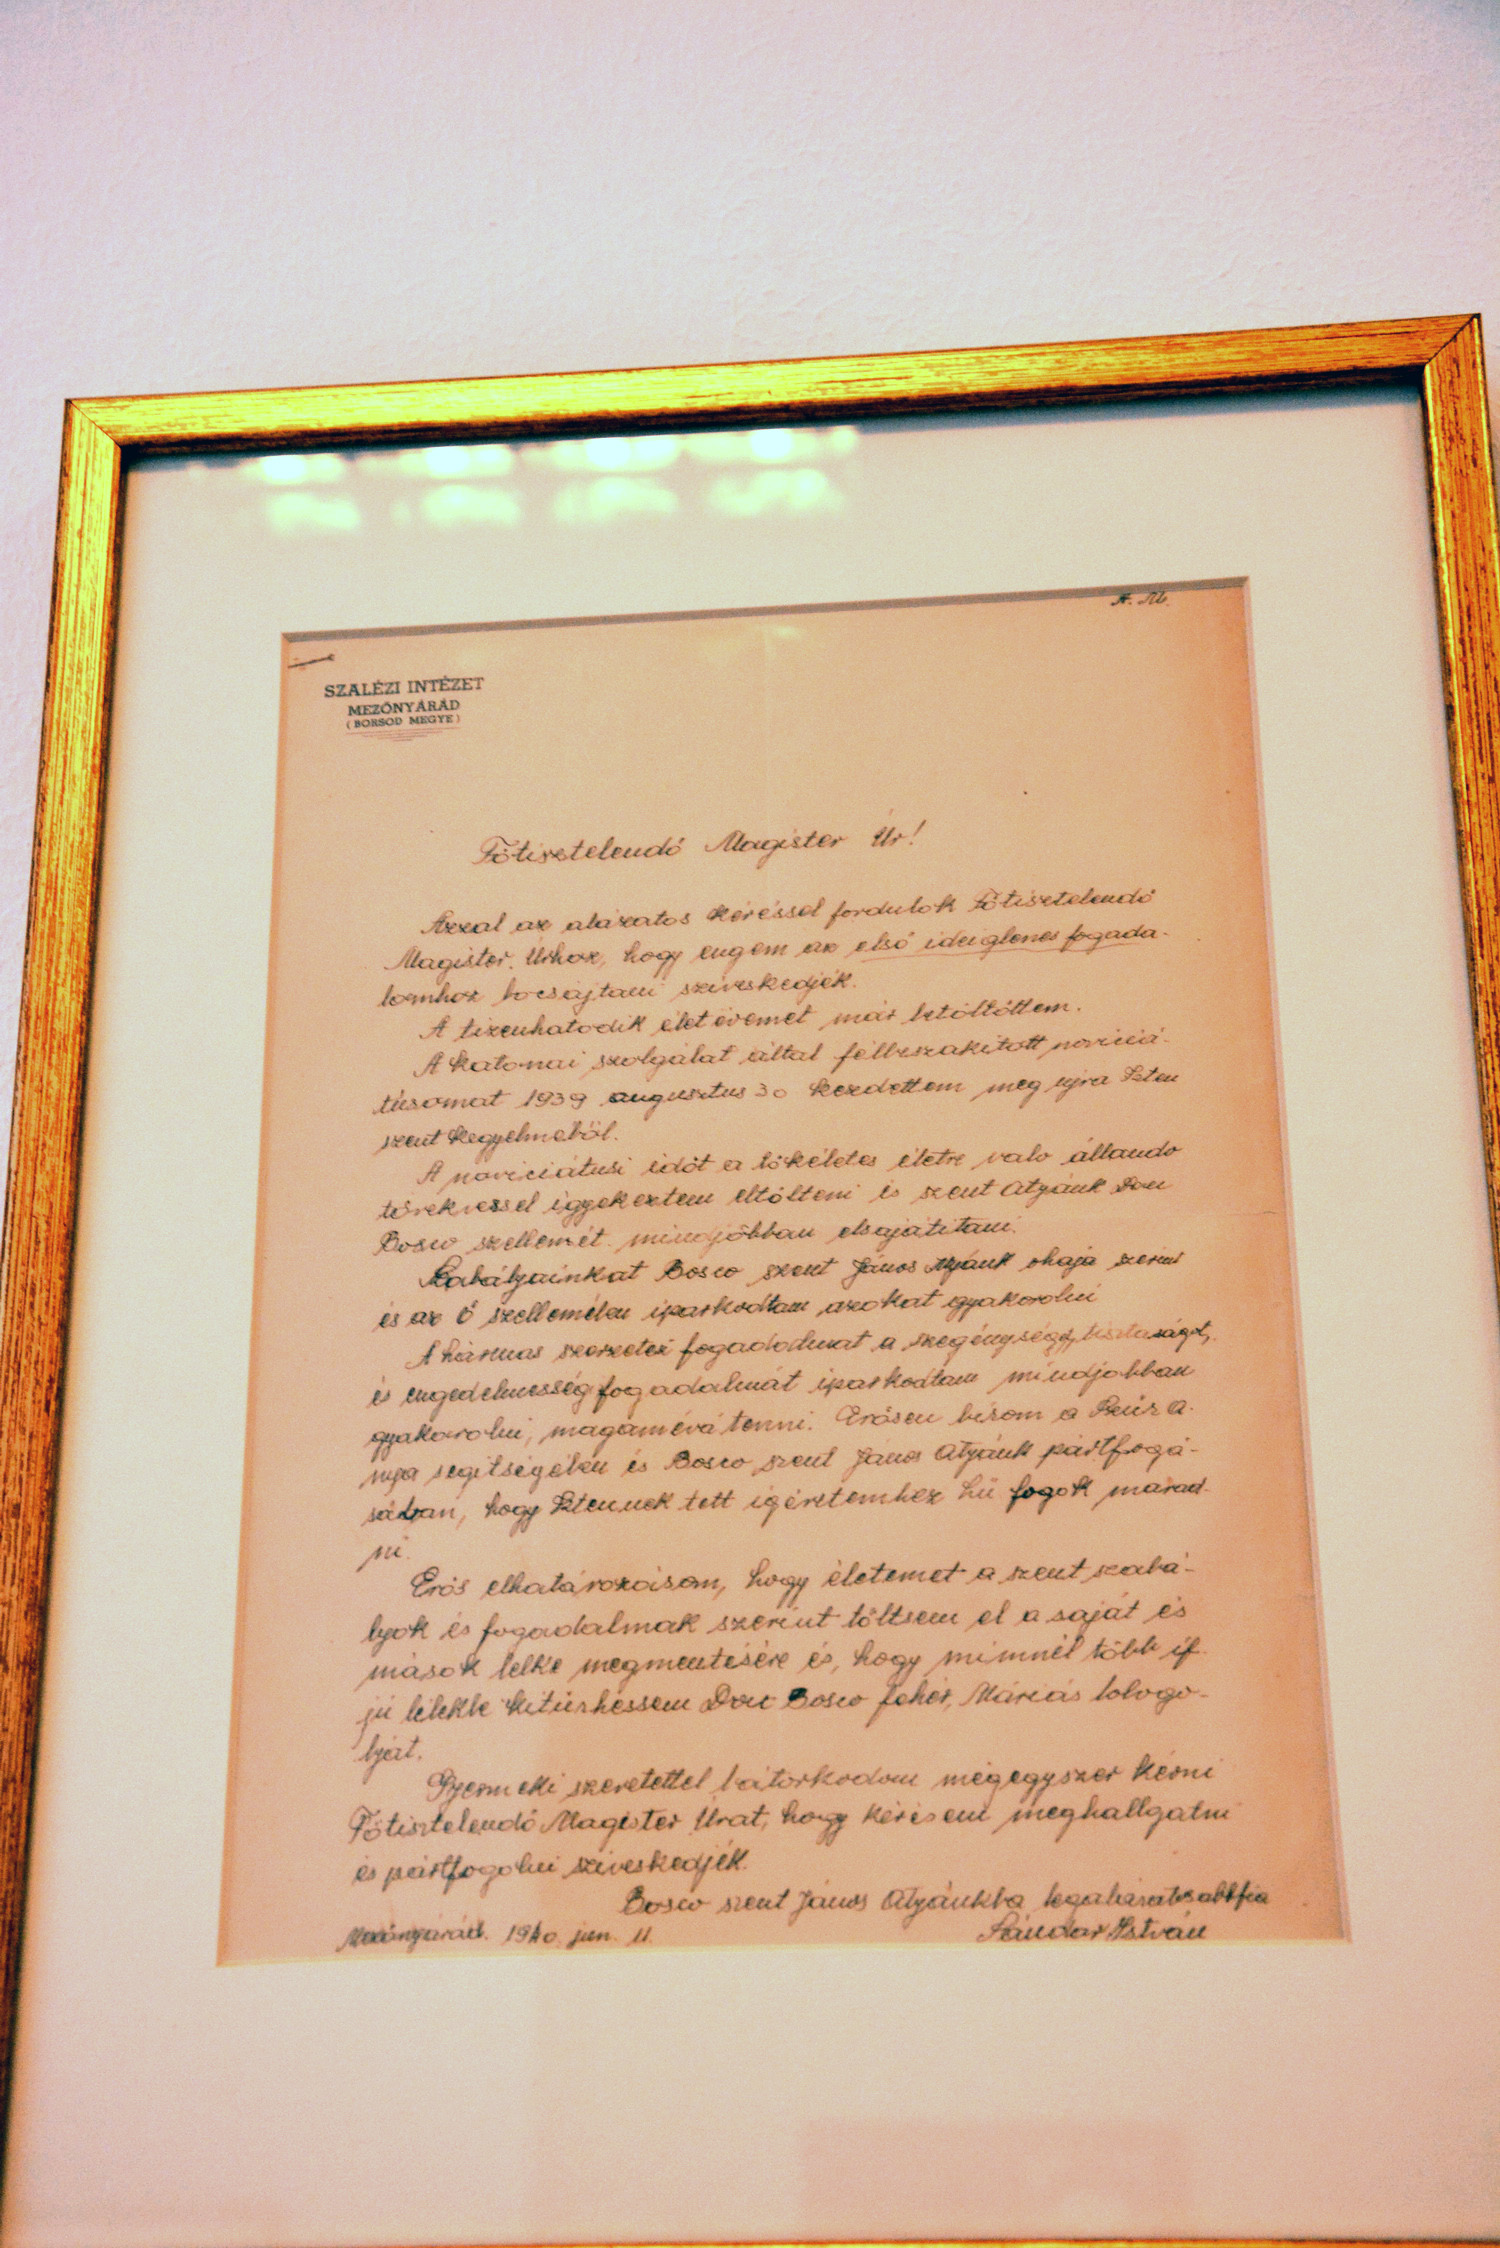 A. M.
SZALÉZI INTÉZET
MEZŐNYÁRÁD
(BORSOD MEGYE)
Főtisztelendő Magister Úr!
Azzal az alázatos kéréssel fordulok Főtisztelendő
Magister Úrhoz, hogy engem az első ideiglenes fogada-
lomhoz bocsájtani sziveskedjék.
A tizenhatodik életévemet már betöltöttem.
A katonai szolgálat által félbeszakitott noviciá-
tusomat 1939 augusztus 30 kezdettem meg ujra Isten
szent kegyelméből.
A noviciátusi időt a tökéletes életre való állandó
törekvessel igyekeztem eltölteni és szent Atyánk Don
Bosco szellemét mindjobban elsajátitani.
Szabályainkat Bosco szent János Atyánk ohaja szerint
és az ő szellemében iparkodtam azokat gyakorolni
A hármas szerzetesi fogadalmat a szegénység, tisztaságot,
és engedelmesség fogadalmát iparkodtam mindjobban
gyakorolni, magamévá tenni. Erősen bizom a Szűz A-
nya segitségében és Bosco szent János Atyánk pártfogá-
sában, hogy Istennek tett igéretemhez hű fogok marad-
ni.
Erős elhatározásom, hogy életemet a szent szabá-
lyok és fogadalmak szerint töltsem el a saját és
mások lelke megmentésére és, hogy minnél több if-
jú lélekbe kitűzhessem Don Bosco fehér, Máriás lobogó-
lyát.
Gyermeki szeretettel bátorkodom mégegyszer kérni
Főtisztelendő Magister Urat, hogy kérésem meghallgatni
és pártfogolni sziveskedjék.
Bosco szent János Atyánkba legalázatosabb fia
Mezőnyárád. 1940. jun. 11.
Sándor István